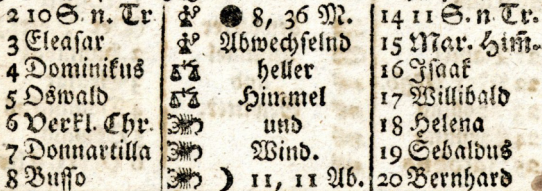 2 10 S. n. Tr. ● 8, 36 M. 14 11 S. n. Tr.
3 Eleasar Abwechselnd 15 Mar. Him̃-
4 Dominikus heller 16 Isaak
5 Oswald Himmel 17 Willibald
6 Verkl. Chr. und 18 Helena
7 Donnartilla Wind. 19 Sebaldus
8 Busso ☽ 11, 11 Ab. 20 Bernhard